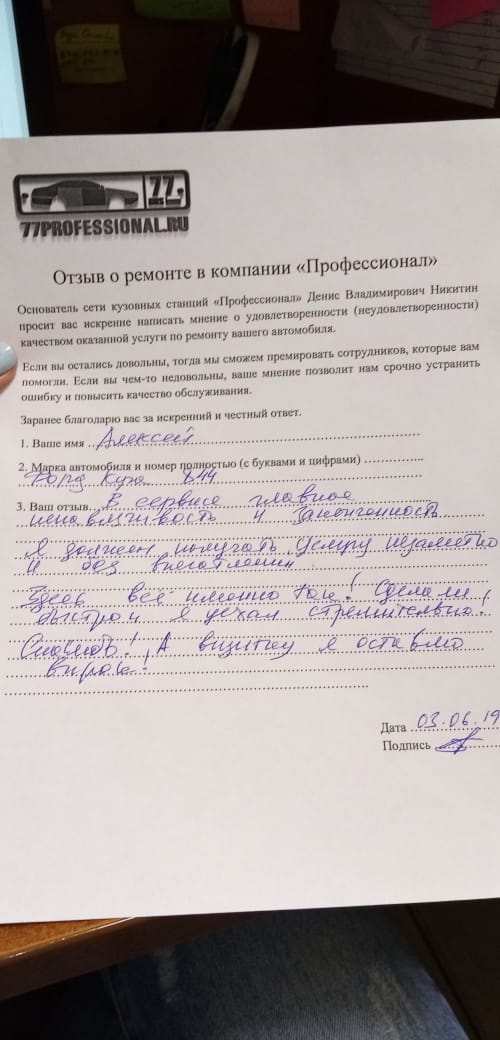 77
77PROFESSIONAL.RU
Отзыв о ремонте в компании «Профессионал»
Основатель сети кузовных станций «Профессионал» Денис Владимирович Никитин
просит вас искренне написать мнение о удовлетворенности (неудовлетворенности)
качеством оказанной услуги по ремонту вашего автомобиля.
Если вы остались довольны, тогда мы сможем премировать сотрудников, которые вам
помогли. Если вы чем-то недовольны, ваше мнение позволит нам срочно устранить
ошибку и повысить качество обслуживания.
Заранее благодарю вас за искренний и честный ответ.
1. Ваше имя Алексей
2. Марка автомобиля и номер полностью (с буквами и цифрами)
Форд Куга 844
3. Ваш отзыв В сервисе главное
ненавязчивость и законченность
Я должен получать услугу незаметно
и без впечатлений
Здесь всё именно так! Сделали
быстро и я уехал стремительно!
Спасибо! А визитку я оставлю
Дата 03.06.19
Подпись